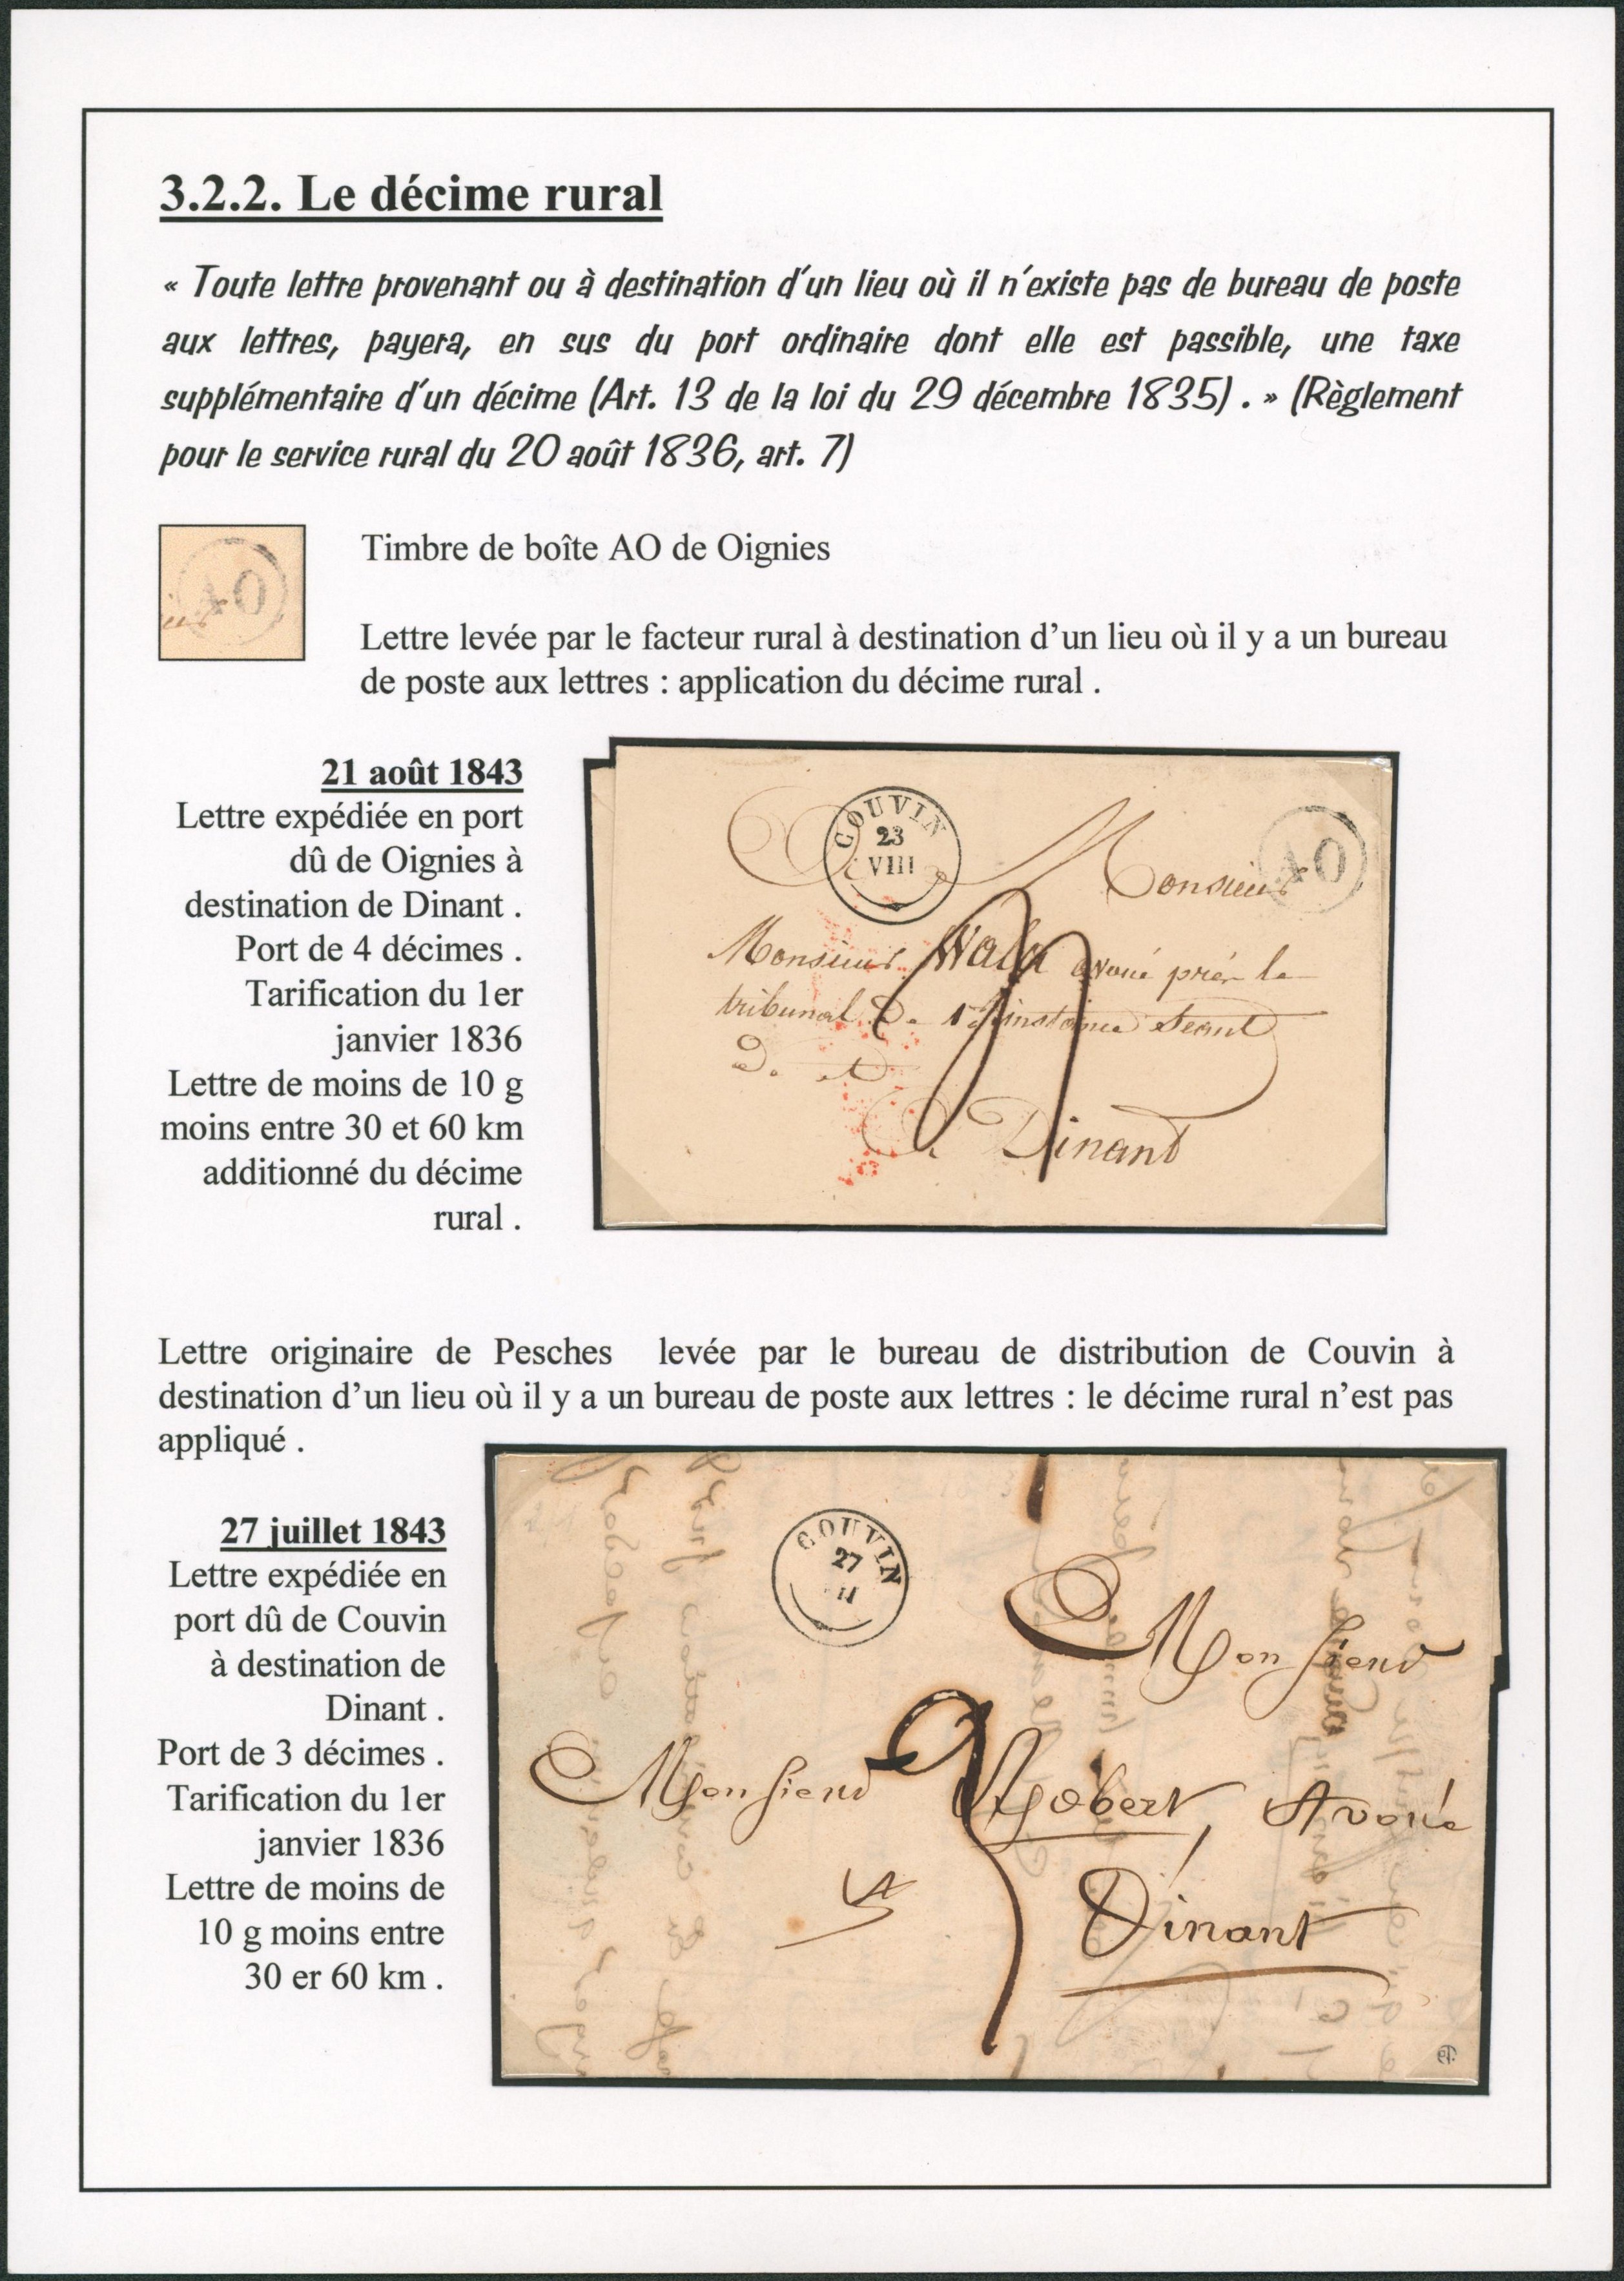 3.2.2. Le décime rural
« Toute lettre provenant ou à destination d'un lieu où il n'existe pas de bureau de poste
aux lettres, payera, en sus du port ordinaire dont elle est passible, une taxe
supplémentaire d'un décime (Art. 13 de la loi du 29 décembre 1835) . » (Règlement
pour le service rural du 20 août 1836, art. 7)
AO
Timbre de boîte AO de Oignies
Lettre levée par le facteur rural à destination d'un lieu où il y a un bureau
de poste aux lettres : application du décime rural .
21 août 1843
Lettre expédiée en port
dû de Oignies à
destination de Dinant .
Port de 4 décimes .
Tarification du 1er
janvier 1836
Lettre de moins de 10 g
moins entre 30 et 60 km
additionné du décime
rural .
COUVIN
23
VIII
AO
Monsieur
Monsieur avoué près le
tribunal de 1re instance Seant
Dinant
Lettre originaire de Pesches levée par le bureau de distribution de Couvin à
destination d'un lieu où il y a un bureau de poste aux lettres : le décime rural n'est pas
appliqué .
27 juillet 1843
Lettre expédiée en
port dû de Couvin
à destination de
Dinant .
Port de 3 décimes .
Tarification du 1er
janvier 1836
Lettre de moins de
10 g moins entre
30 er 60 km .
COUVIN
27
Monsieur
3
Monsieur Avoué
Dinant